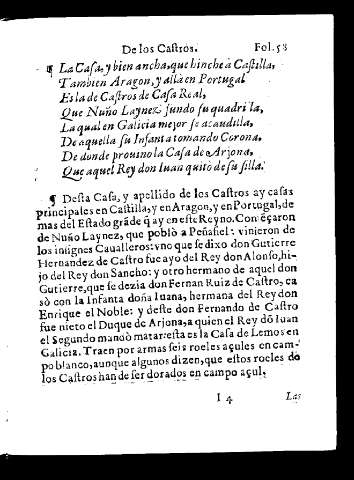 De los Castros. Fol. 58
¶ La Casa, y bien ancha, que hinche à Castilla,
Tambien Aragon, y allà en Portugal
Es la de Castros de Casa Real,
Que Nuño Laynez fundo su quadrilla,
La qual en Galicia mejor se acaudilla,
De aquella su Infanta tomando Corona,
De donde prouino la Casa de Arjona,
Que aquel Rey don Iuan quitò de su silla.
¶ Desta Casa, y apellido de los Castros ay casas
principales en Castilla, y en Aragon, y en Portugal, de
mas del Estado grãde q̃ ay en este Reyno. Comẽçaron
de Nuño Laynez, que poblò a Peñafiel: vinieron de
los insignes Caualleros: vno que se dixo don Gutierre
Hernandez de Castro fue ayo del Rey don Alonso, hi-
jo del Rey don Sancho: y otro hermano de aquel don
Gutierre, que se dezia don Fernan Ruiz de Castro, ca
sò con la Infanta doña Iuana, hermana del Rey don
Enrique el Noble: y deste don Fernando de Castro
fue nieto el Duque de Arjona, a quien el Rey dõ Iuan
el Segundo mandò matar: esta es la Casa de Lemos en
Galicia. Traen por armas seis roeles açules en cam-
po blanco, aunque algunos dizen, que estos roeles de
los Castros han de ser dorados en campo açul.
I 4 Las